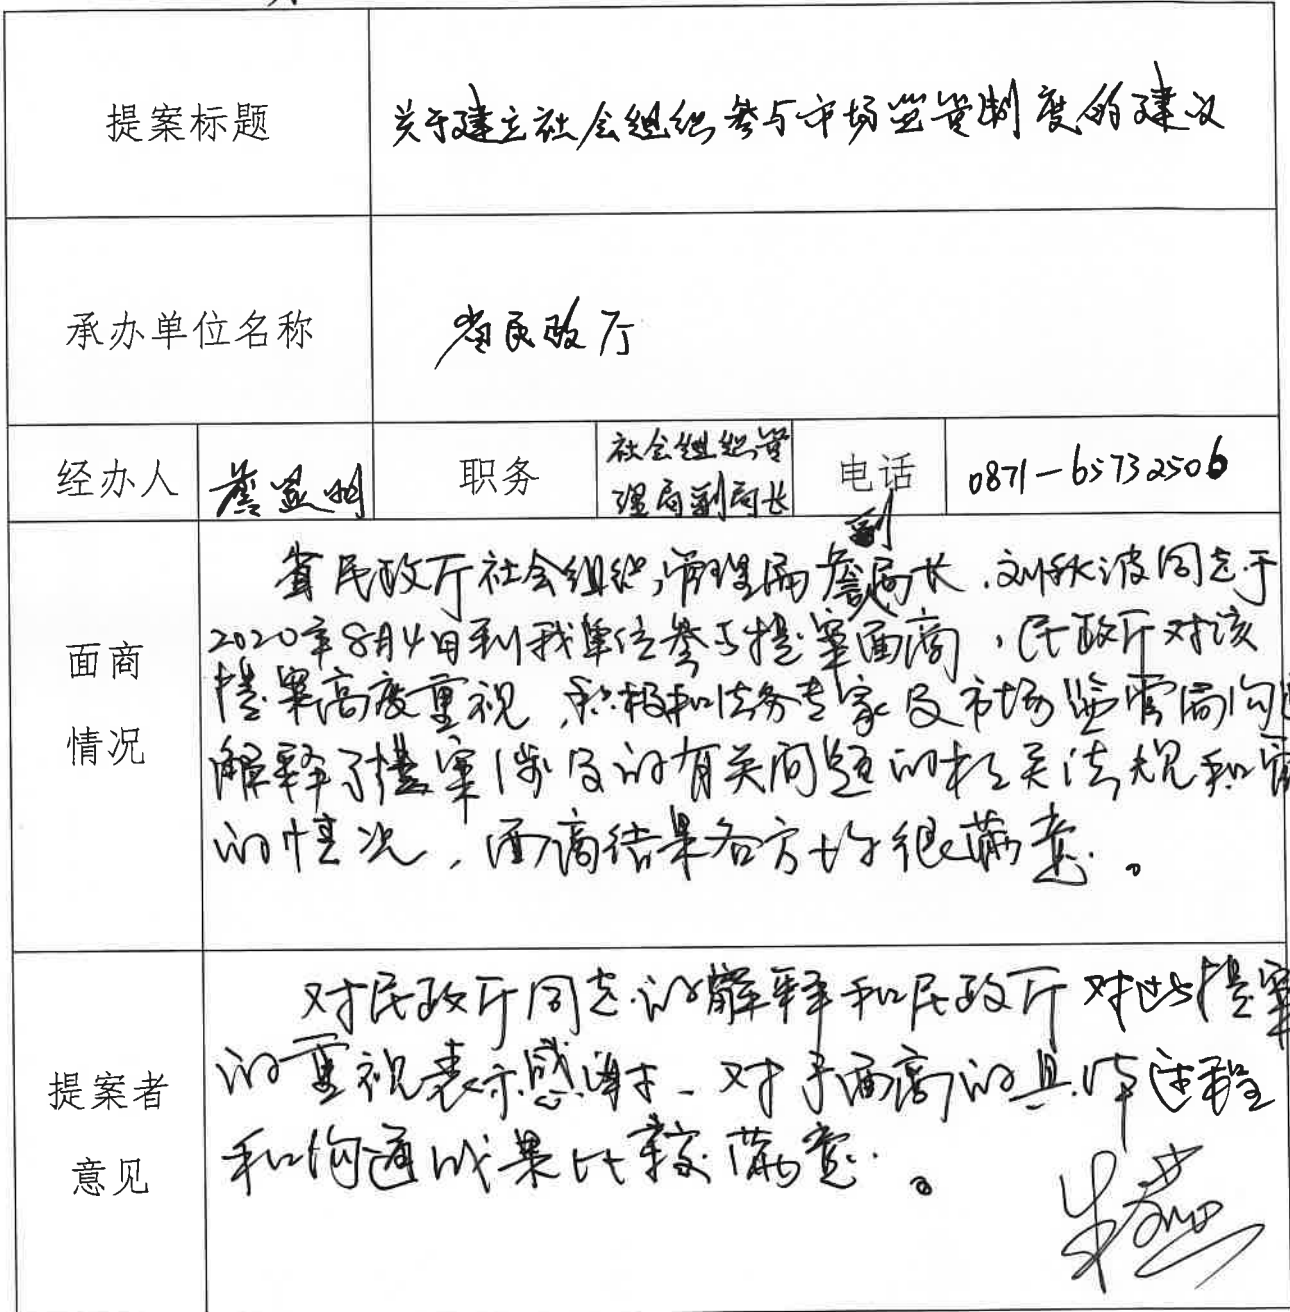 提案标题
关于建立社会组织参与市场监管制度的建议
承办单位名称
省民政厅
经办人
职务
社会组织管
理局副局长
电话
0871-65732506
面商
情况
省民政厅社会组织管理局詹副局长、刘秋波同志于
2020年8月4日到我单位参与提案面商,民政厅对该
提案高度重视,积极和法务专家及市场监管局沟通
解释了提案涉及的有关问题的相关法规和
的情况,面商结果各方均很满意。
提案者
意见
对民政厅同志的解释和民政厅对此提案
的重视表示感谢、对于面商的具体过程
和沟通成果比较满意。